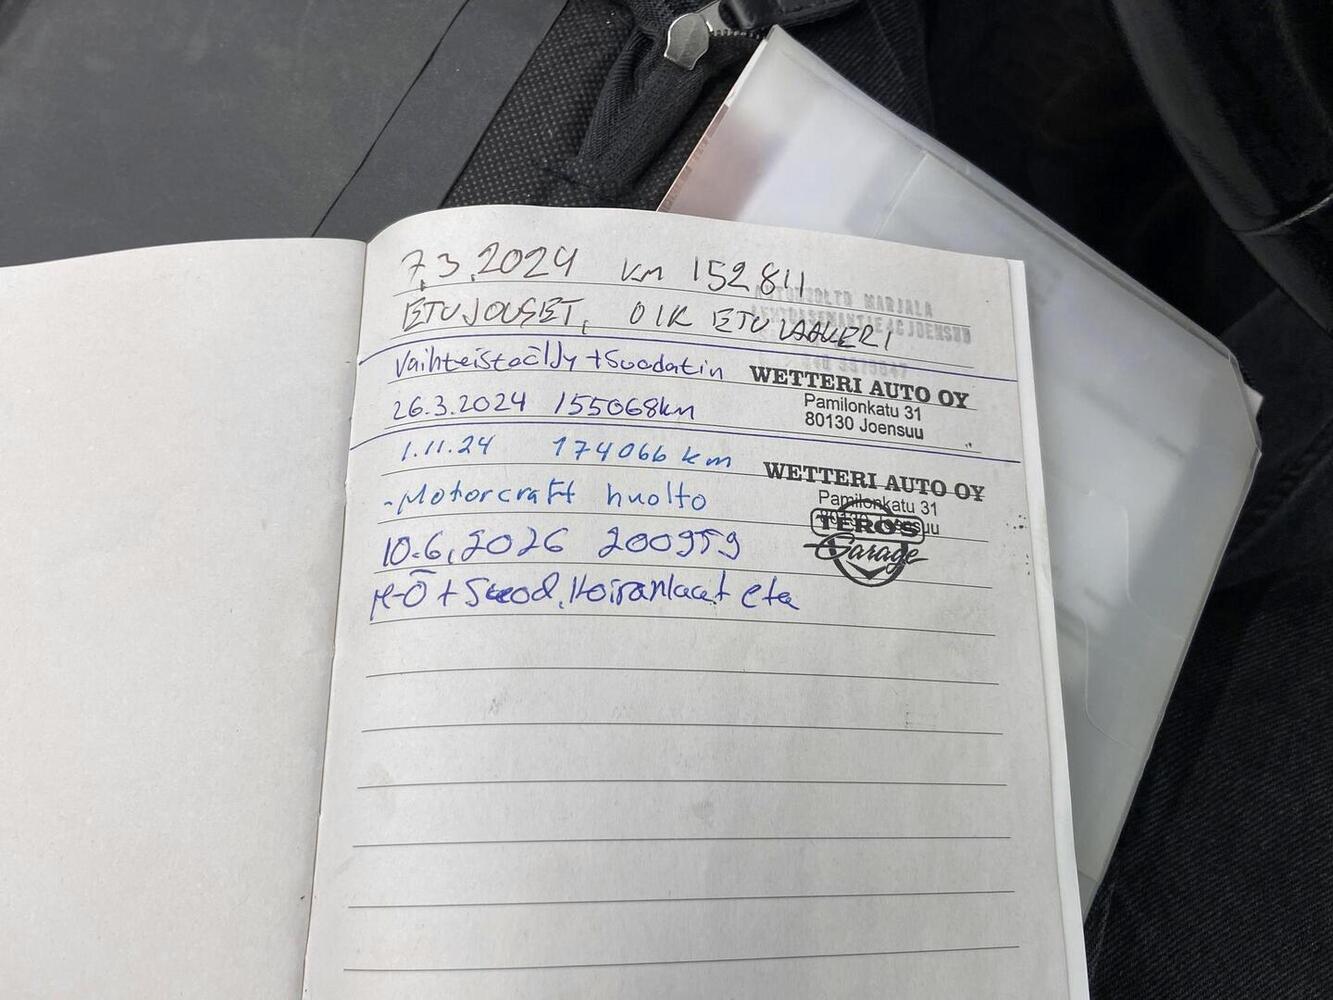 7.3.2024 km 152811
AUTOHUOLTO MARJALA
ETUJOUSET, OIK ETULAAKERI
LENTOASEMANTIE 4C JOENSUU
Vaihteistoöljy + Suodatin
WETTERI AUTO OY
Pamilonkatu 31
80130 Joensuu
26.3.2024 155068km
1.11.24 174066 km
WETTERI AUTO OY
Pamilonkatu 31
- Motorcraft huolto
TERO'S
Garage
10.6.2026 200959
M-Ö + Suod, Koiranluut eta